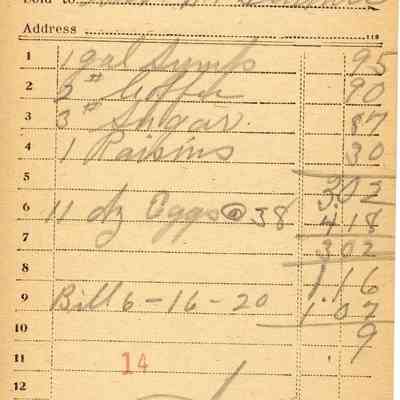 Sold to
Address 191
1 1 gal Syrup 95
2 2 # Coffee 90
3 3 # Sugar. 87
4 1 Raisins 30
5 302
6 11 dz Eggs @ 38 4 18
7 3 02
8 1,16
9 Bill 6-16-20 1.07
10 9
11 14
12